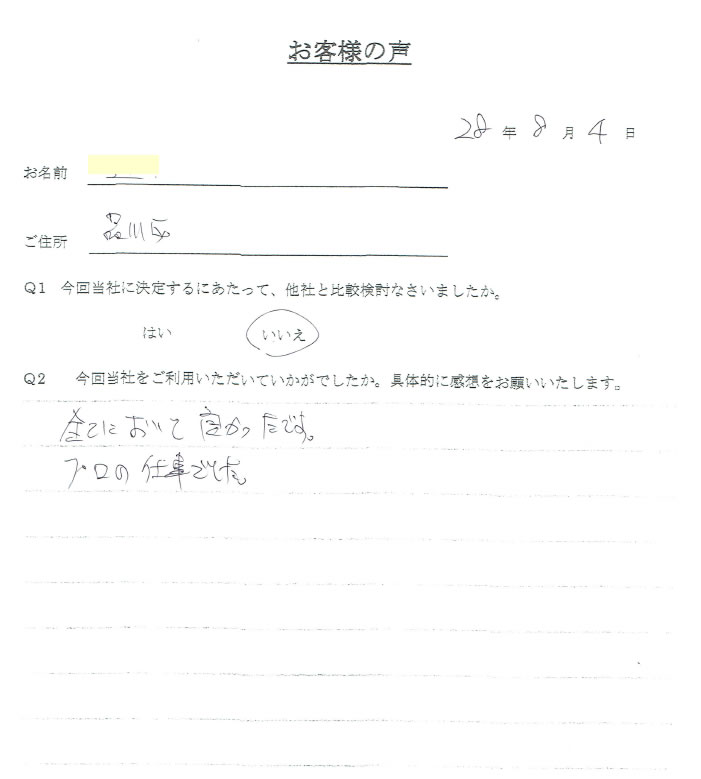 お客様の声
28年8月4日
お名前
ご住所 品川区
Q1 今回当社に決定するにあたって、他社と比較検討なさいましたか。
はい いいえ
Q2 今回当社をご利用いただいていかがでしたか。具体的に感想をお願いいたします。
全てにおいて良かったです。
プロの仕事でした。